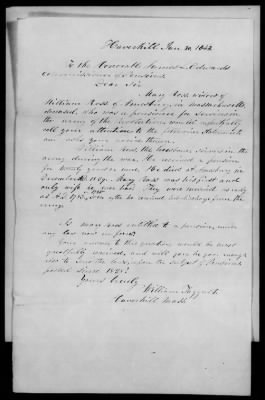 Haverhill Jan. 20, 1842
To the Honorable James L Edwards
Commissioner of Pensions
Dear Sir
Mary Ross widow of
William Ross of Amesbury, in Massachusetts
deceased, who was a pensioner for services in
the army of the Revolution would respectfully
call your attention to the following statement
and ask your advice thereon.
William Ross, the husband, served in the
army during the war. He received a pension
for many years and died at Amesbury in
December. Mary Ross was his first and
only wife he ever had. They were married as early
as A.D. 1783, soon after he received his discharge from the
army.
Is Mary Ross entitled to a pension, under
any law now in force?
Your answer to this question would be most
gratefully received, and will you be so good
also to send the laws upon the subject of Pensions
passed since 1828?
Yours truly
William Taggart
Haverhill Mass.